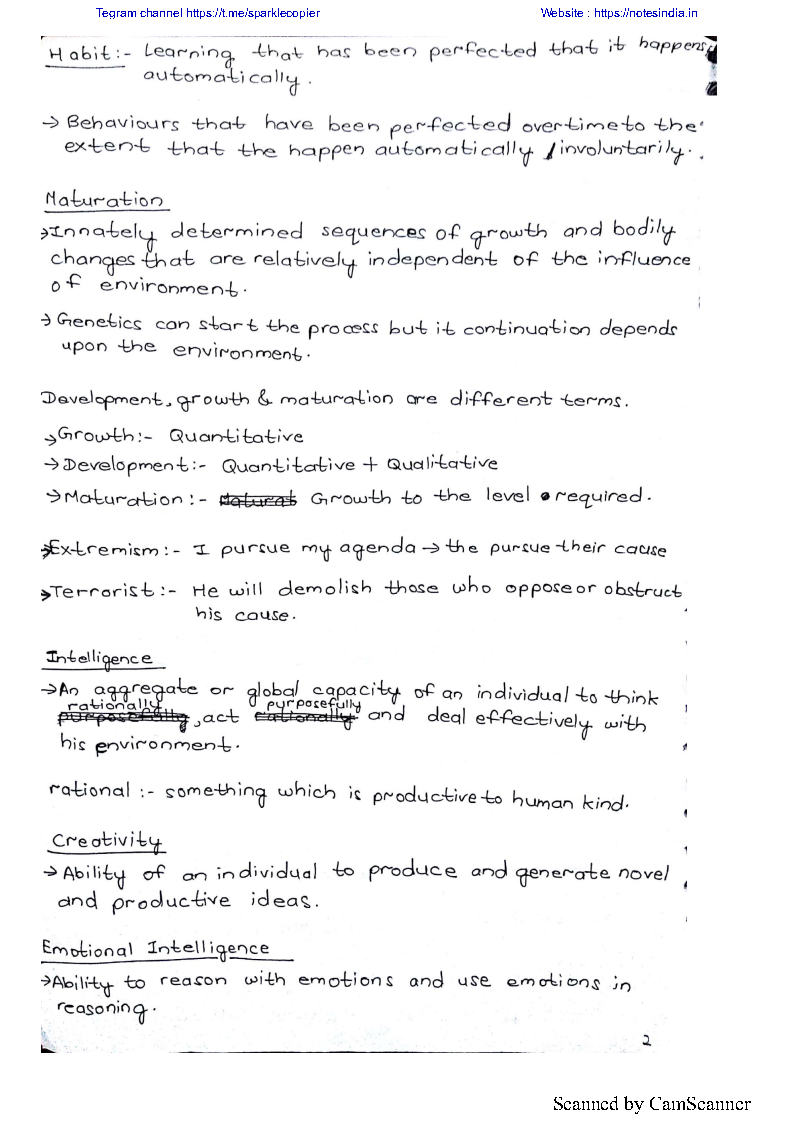 Tegram channel https://t.me/sparklecopier Website : https://notesindia.in
Habit:- Learning that has been perfected that it happens
automatically.
→ Behaviours that have been perfected overtime to the
extent that the happen automatically / involuntarily.
Maturation
→ Innately determined sequences of growth and bodily
changes that are relatively independent of the influence
of environment.
→ Genetics can start the process but it continuation depends
upon the environment.
Development, growth & maturation are different terms.
→ Growth:- Quantitative
→ Development:- Quantitative + Qualitative
→ Maturation:- Growth to the level required.
→ Extremism:- I pursue my agenda → the pursue their cause
→ Terrorist:- He will demolish those who oppose or obstruct
his cause.
Intelligence
→ An aggregate or global capacity of an individual to think
rationally, act purposefully and deal effectively with
his environment.
rational :- something which is productive to human kind.
Creativity
→ Ability of an individual to produce and generate novel
and productive ideas.
Emotional Intelligence
→ Ability to reason with emotions and use emotions in
reasoning.
2
Scanned by CamScanner